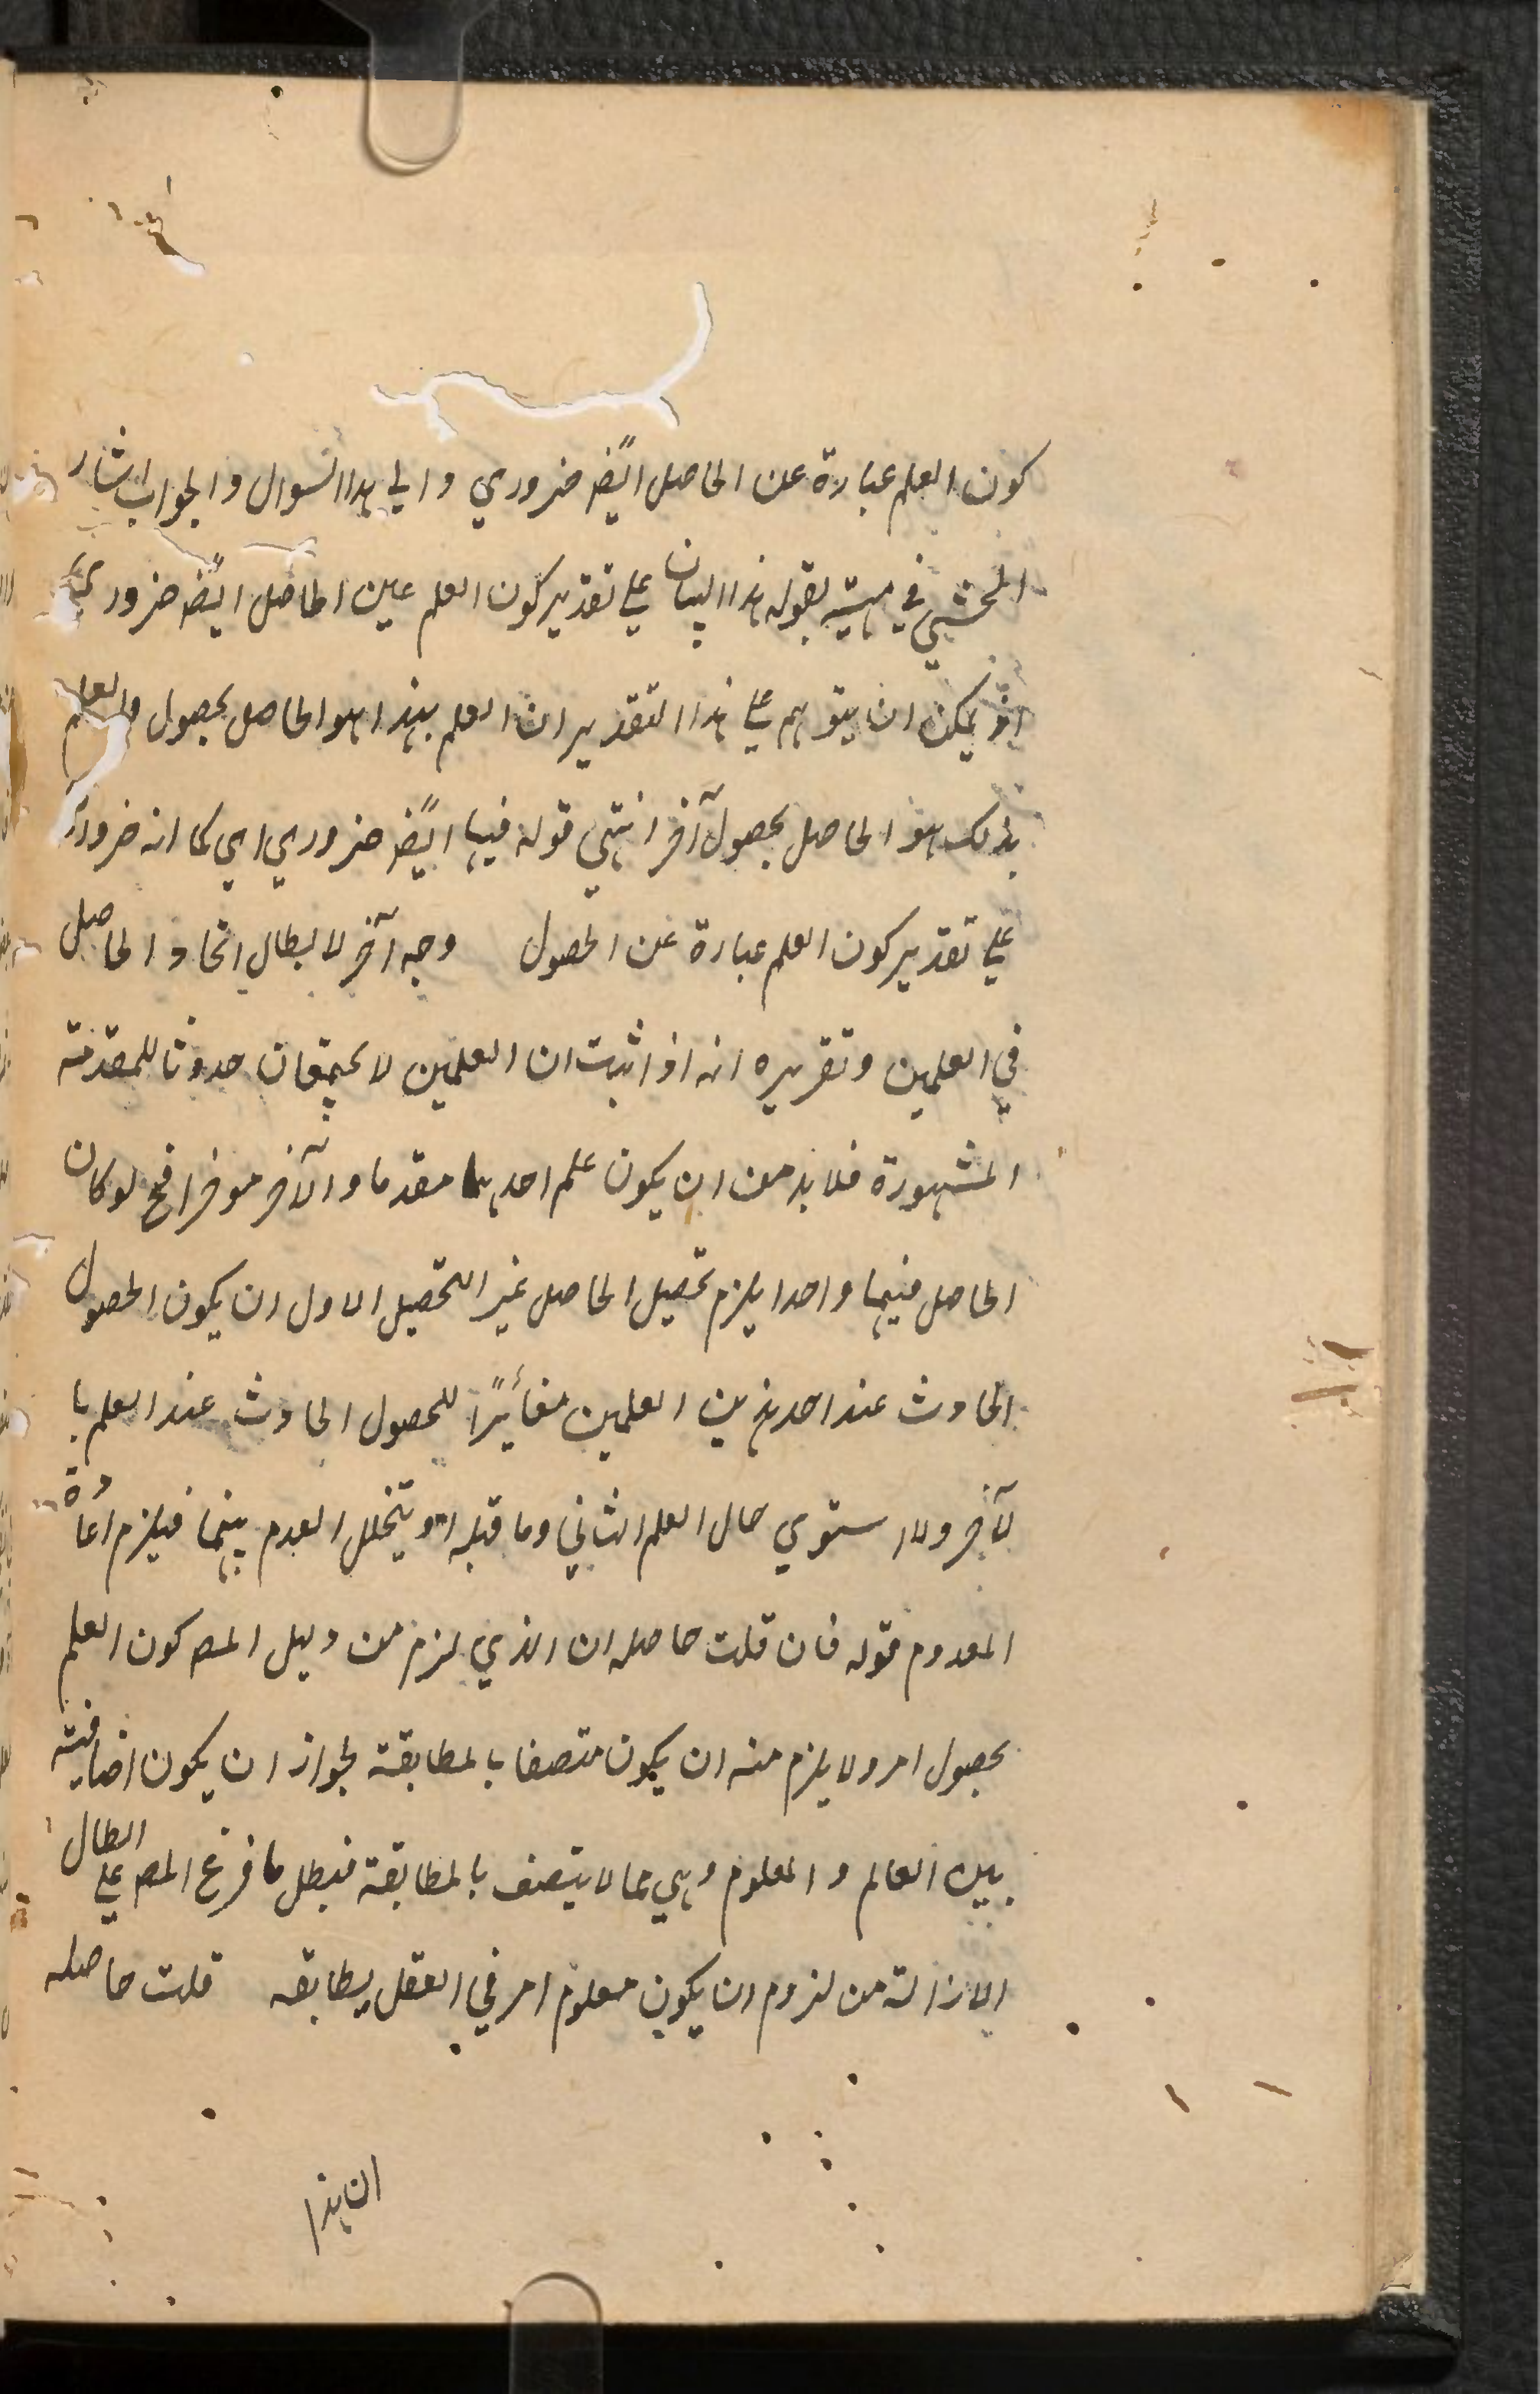 كون العلم عبارة عن الحاصل ايضً ضروري والي هذا السوال والجواب اشار
المحشي في منهيته بقوله هذا البيان علي تقدير كون العلم عين الحاصل ايضً ضروري
اذ يمكن ان يتوهم علي هذا التقدير ان العلم بهذا هو الحاصل بحصول والعلم
بذلك هو الحاصل بحصول آخر انتهي قوله فيها ايضً ضروري اي كما انه ضروري
علي تقدير كون العلم عبارة عن الحصول وجه آخر لابطال اتحاد الحاصل
في العلمين وتقريره انه اذا ثبت ان العلمين لا يجتمعان حدوثا للمقدمة
المشهورة فلا بد من ان يكون علم احدهما مقدما والآخر موخرا فح لو كان
الحاصل فيهما واحدا يلزم تحصيل الحاصل غير التحصيل الاول ان يكون الحصول
الحادث عند احد هذين العلمين مغائيرًا للحصول الحادث عند العلم با
لآخر والا ستوي حال العلم الثاني وما قبله او يتخلل العدم بينهما فيلزم اعادة
المعدوم قوله فان قلت حاصله ان الذي لزم من دليل المصـ كون العلم
بحصول امر ولا يلزم منه ان يكون متصفا بالمطابقة لجواز ان يكون اضافية
بين العالم والمعلوم وهي مما لا يتصف بالمطابقة فبطل ما فرع المصـ علي ابطال
الازالة من لزوم ان يكون معلوم امر في العقل يطابقه قلت حاصله
ان هذا